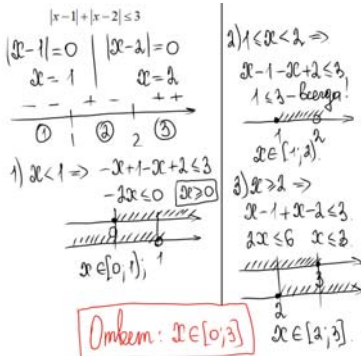 |x-1|+|x-2|≤3
|x-1|=0 | |x-2|=0
x=1 x=2
- - + - + +
① 1 ② 2 ③
1) x<1 => -x+1-x+2≤3
-2x≤0 x≥0
0 1
x∈[0;1);
2) 1≤x<2 =>
x-1-x+2≤3,
1≤3-всегда!
1 2
x∈[1;2).
3) x≥2 =>
x-1+x-2≤3.
2x≤6 x≤3.
3
2
x∈[2;3].
Ответ: x∈[0;3]